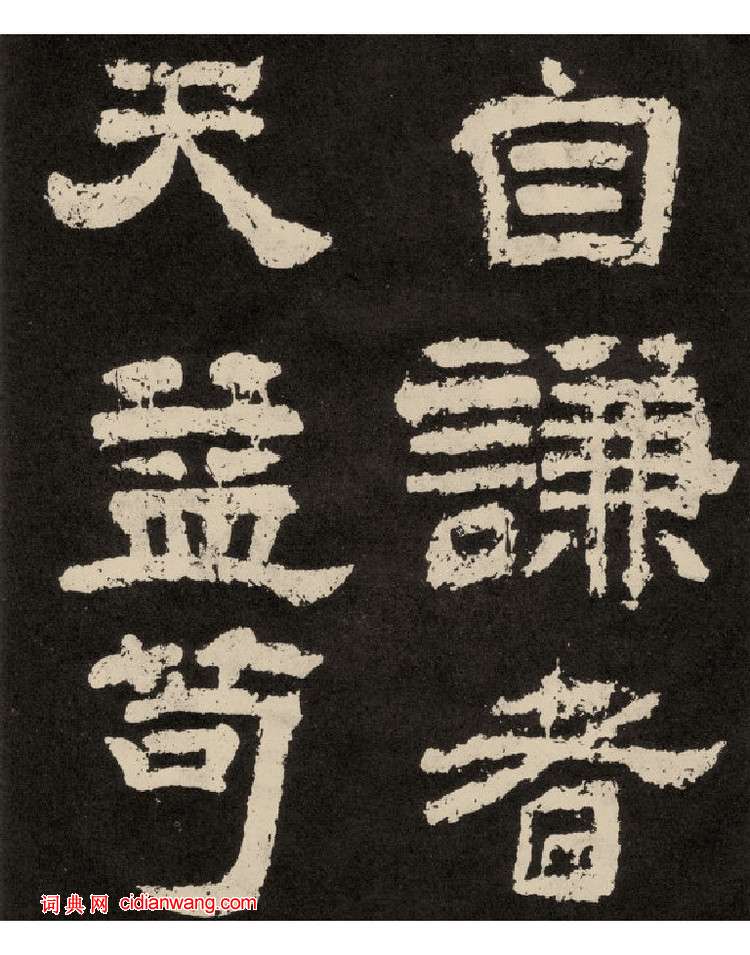 自謙者
天益苟
词典网 cidianwang.com